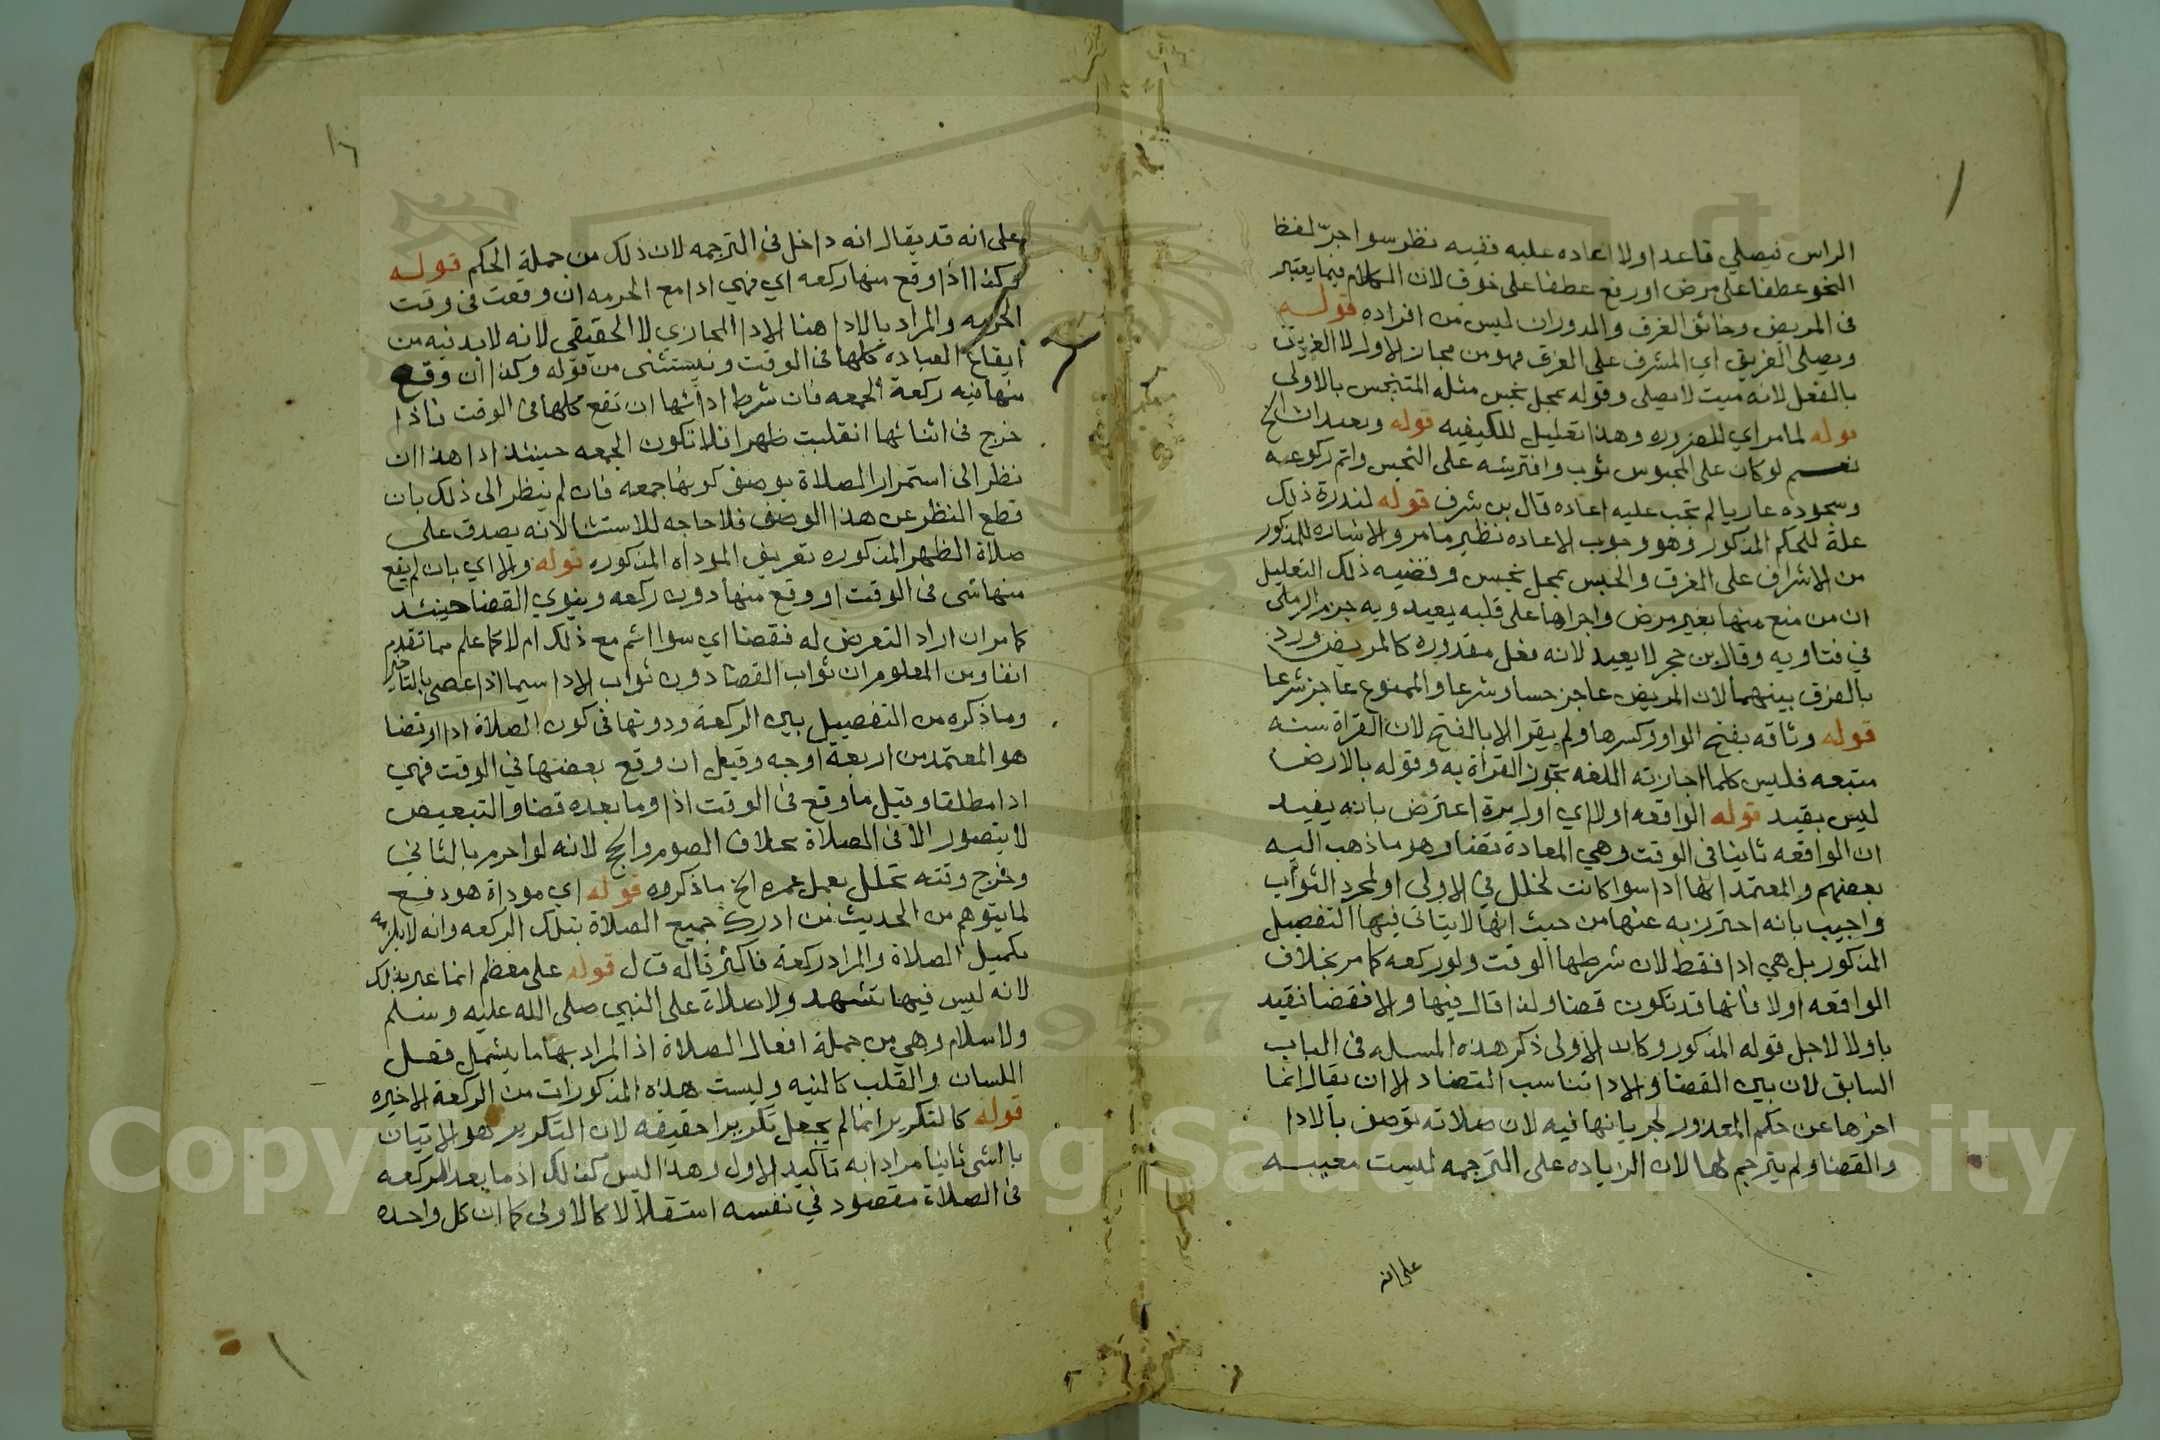 الراس فيصلي قاعدا ولا اعاده عليه ففيه نظر سوا جرّ لفظ
النحو عطفا على مرض او رفع عطفا على خوف لان الكلام فيما يعتبر
في المريض وخائف الغرق والدوران ليس من افراده قوله
ويصلي الغريق اي المشرف على الغرق فهو من مجاز الاول لا الغريق
بالفعل لانه ميت لا يصلي وقوله بمحل نجس مثله المتنجس بالاولى
قوله لما مر اي للضروره وهذا تعليل للكيفيه قوله وبعيدان الخ
نعم لو كان على المحبوس ثوب وافترشه على النجس واتم ركوعه
وسجوده عاريا لم تجب عليه اعاده قال بن شرف قوله لندرة ذلك
علة للحكم المذكور وهو وجوب الاعاده نظير ما مر والاشاره للمذكور
من الاشراف على الغرق والحبس بمحل نجس وقضيه ذلك التعليل
ان من منع منها بغير مرض واجراها على قلبه يعيد وبه جزم الرملي
في فتاويه وقال بن حجر لا يعيد لانه فعل مقدوره كالمريض ورد
بالفرق بينهما لان المريض عاجز حسا وشرعا والممنوع عاجز شرعا
قوله وثاقه بفتح الواو وكسرها ولم يقر الا بالفتح لان القراة سنه
متبعه فليس كلما اجازته اللغه تجوز القراة به وقوله بالارض
ليس بقيد قوله الواقعه اولا اي اول مرة اعترض بانه يفيد
ان الواقعه ثانيا في الوقت وهي المعادة تقضا وهو ما ذهب اليه
بعضهم والمعتمد انها ادا سوا كانت لخلل في الاولى او لمجرد الثواب
واجيب بانه احترز به عنها من حيث انها لا يتاتى فيها التفصيل
المذكور بل هي ادا فقط لان شرطها الوقت ولو ركعه كما مر بخلاف
الواقعه اولا فانها قد تكون قضا ولذا قال فيها والا فقضا فقيد
باولا لاجل قوله المذكور وكان الاولى ذكر هذه المسله في الباب
السابق لان بين القضا والادا تناسب التضاد الا ان يقال انما
اخرها عن حكم المعذور لجريانها فيه لان صلاته توصف بالادا
والقضا ولم يترجم لها لان الزياده على الترجمه ليست معيبه
على انه
على انه قد يقال انه داخل في الترجمه لان ذلك من جملة الحكم قوله
وكذا اذا وقع منها ركعه اي فهي ادا مع الحرمه ان وقعت في وقت
الحرمه والمراد بالادا هنا الادا المجازي لا الحقيقي لانه لابد فيه من
ايقاع العباده كلها في الوقت ويستثنى من قوله وكذا ان وقع
منها فيه ركعة الجمعه فان شرط ادائها ان تقع كلها في الوقت فاذا
خرج في اثنائها انقلبت ظهرا فلا تكون الجمعه حينئذ ادا هذا ان
نظر الى استمرار الصلاة بوصف كونها جمعه فان لم ينظر الى ذلك بان
قطع النظر عن هذا الوصف فلا حاجه للاستثنا لانه يصدق على
صلاة الظهر المذكوره تعريف الموداه المذكوره قوله والا اي بان لم يقع
منها شي في الوقت او وقع منها دون ركعه وينوي القضا حينئذ
كما مر ان اراد التعرض له فقضا اي سوا اثم مع ذلك ام لا كما علم مما تقدم
انفا ومن المعلوم ان ثواب القضا دون ثواب الادا سيما اذا عصى بالتاخير
وما ذكره من التفصيل بين الركعة ودونها في كون الصلاة ادا او قضا
هو المعتمد من اربعة اوجه وقيل ان وقع بعضها في الوقت فهي
ادا مطلقا وقيل ما وقع في الوقت ادا وما بعده قضا والتبعيض
لا يتصور الا في الصلاة بخلاف الصوم والحج لانه لو احرم بالثاني
وخرج وقته تحلل بعمل عمره الخ ما ذكروه قوله اي موداة هو دفع
لما يتوهم من الحديث من ادرك جميع الصلاة بتلك الركعه وانه لا يلزمه
تكميل الصلاة والمراد ركعة فاكثر قاله ق ل قوله على معظم انما عبر بذلك
لانه ليس فيها تشهد ولا صلاة على النبي صلى الله عليه وسلم
ولا سلام وهي من جملة افعال الصلاة اذ المراد بها ما يشمل فعل
اللسان والقلب كالنيه وليست هذه المذكورات من الركعة الاخيره
قوله كالتكرير انما لم يجعل تكريرا حقيقه لان التكرير هو الاتيان
بالشي ثانيا مرادا به تاكيد الاول وهذا ليس كذلك اذ ما بعد الركعه
في الصلاة مقصود في نفسه استقلالا كالاولى كما ان كل واحده
Copyright © King Saud University
1957